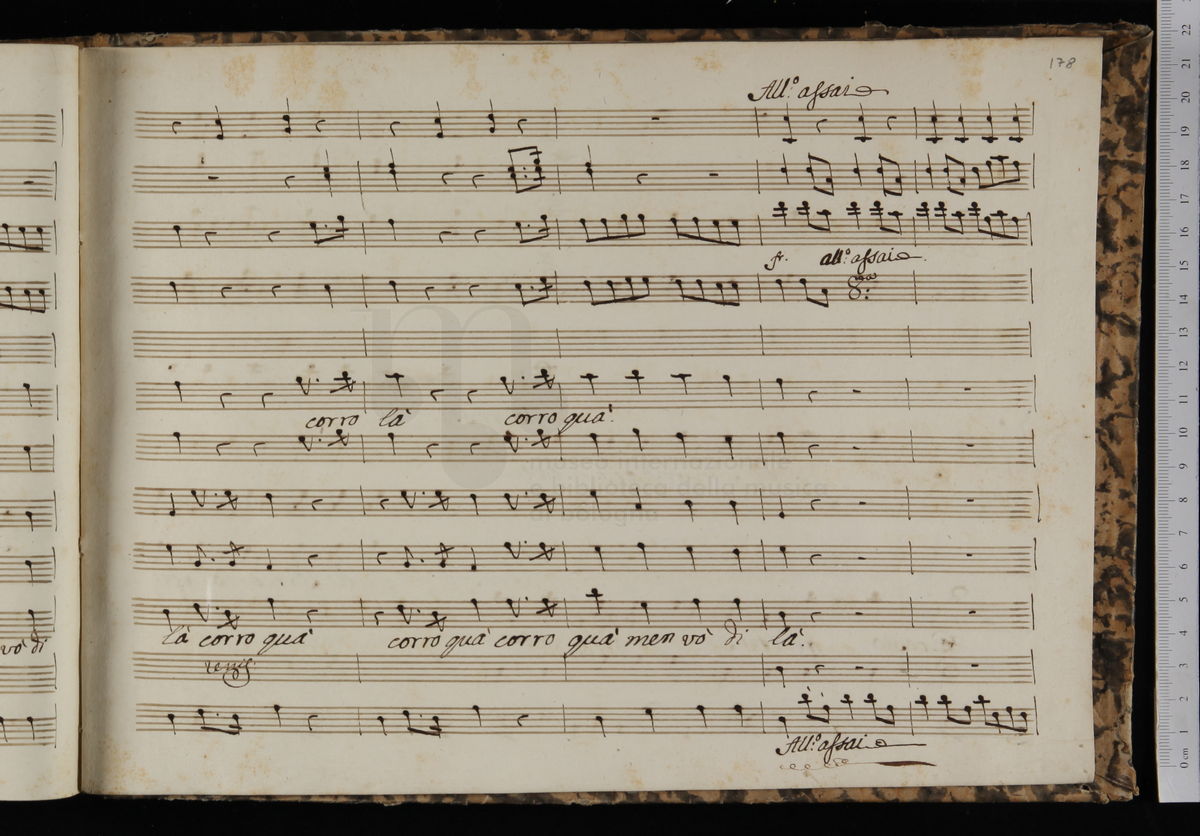 178
All.º assai
f. all.º assai
8:va
corro là corro quà.
museo internazionale
e biblioteca della musica
di bologna
vò di là corro quà corro quà corro quà men vò di là.
All.º assai
0 cm 1 2 3 4 5 6 7 8 9 10 11 12 13 14 15 16 17 18 19 20 21 22